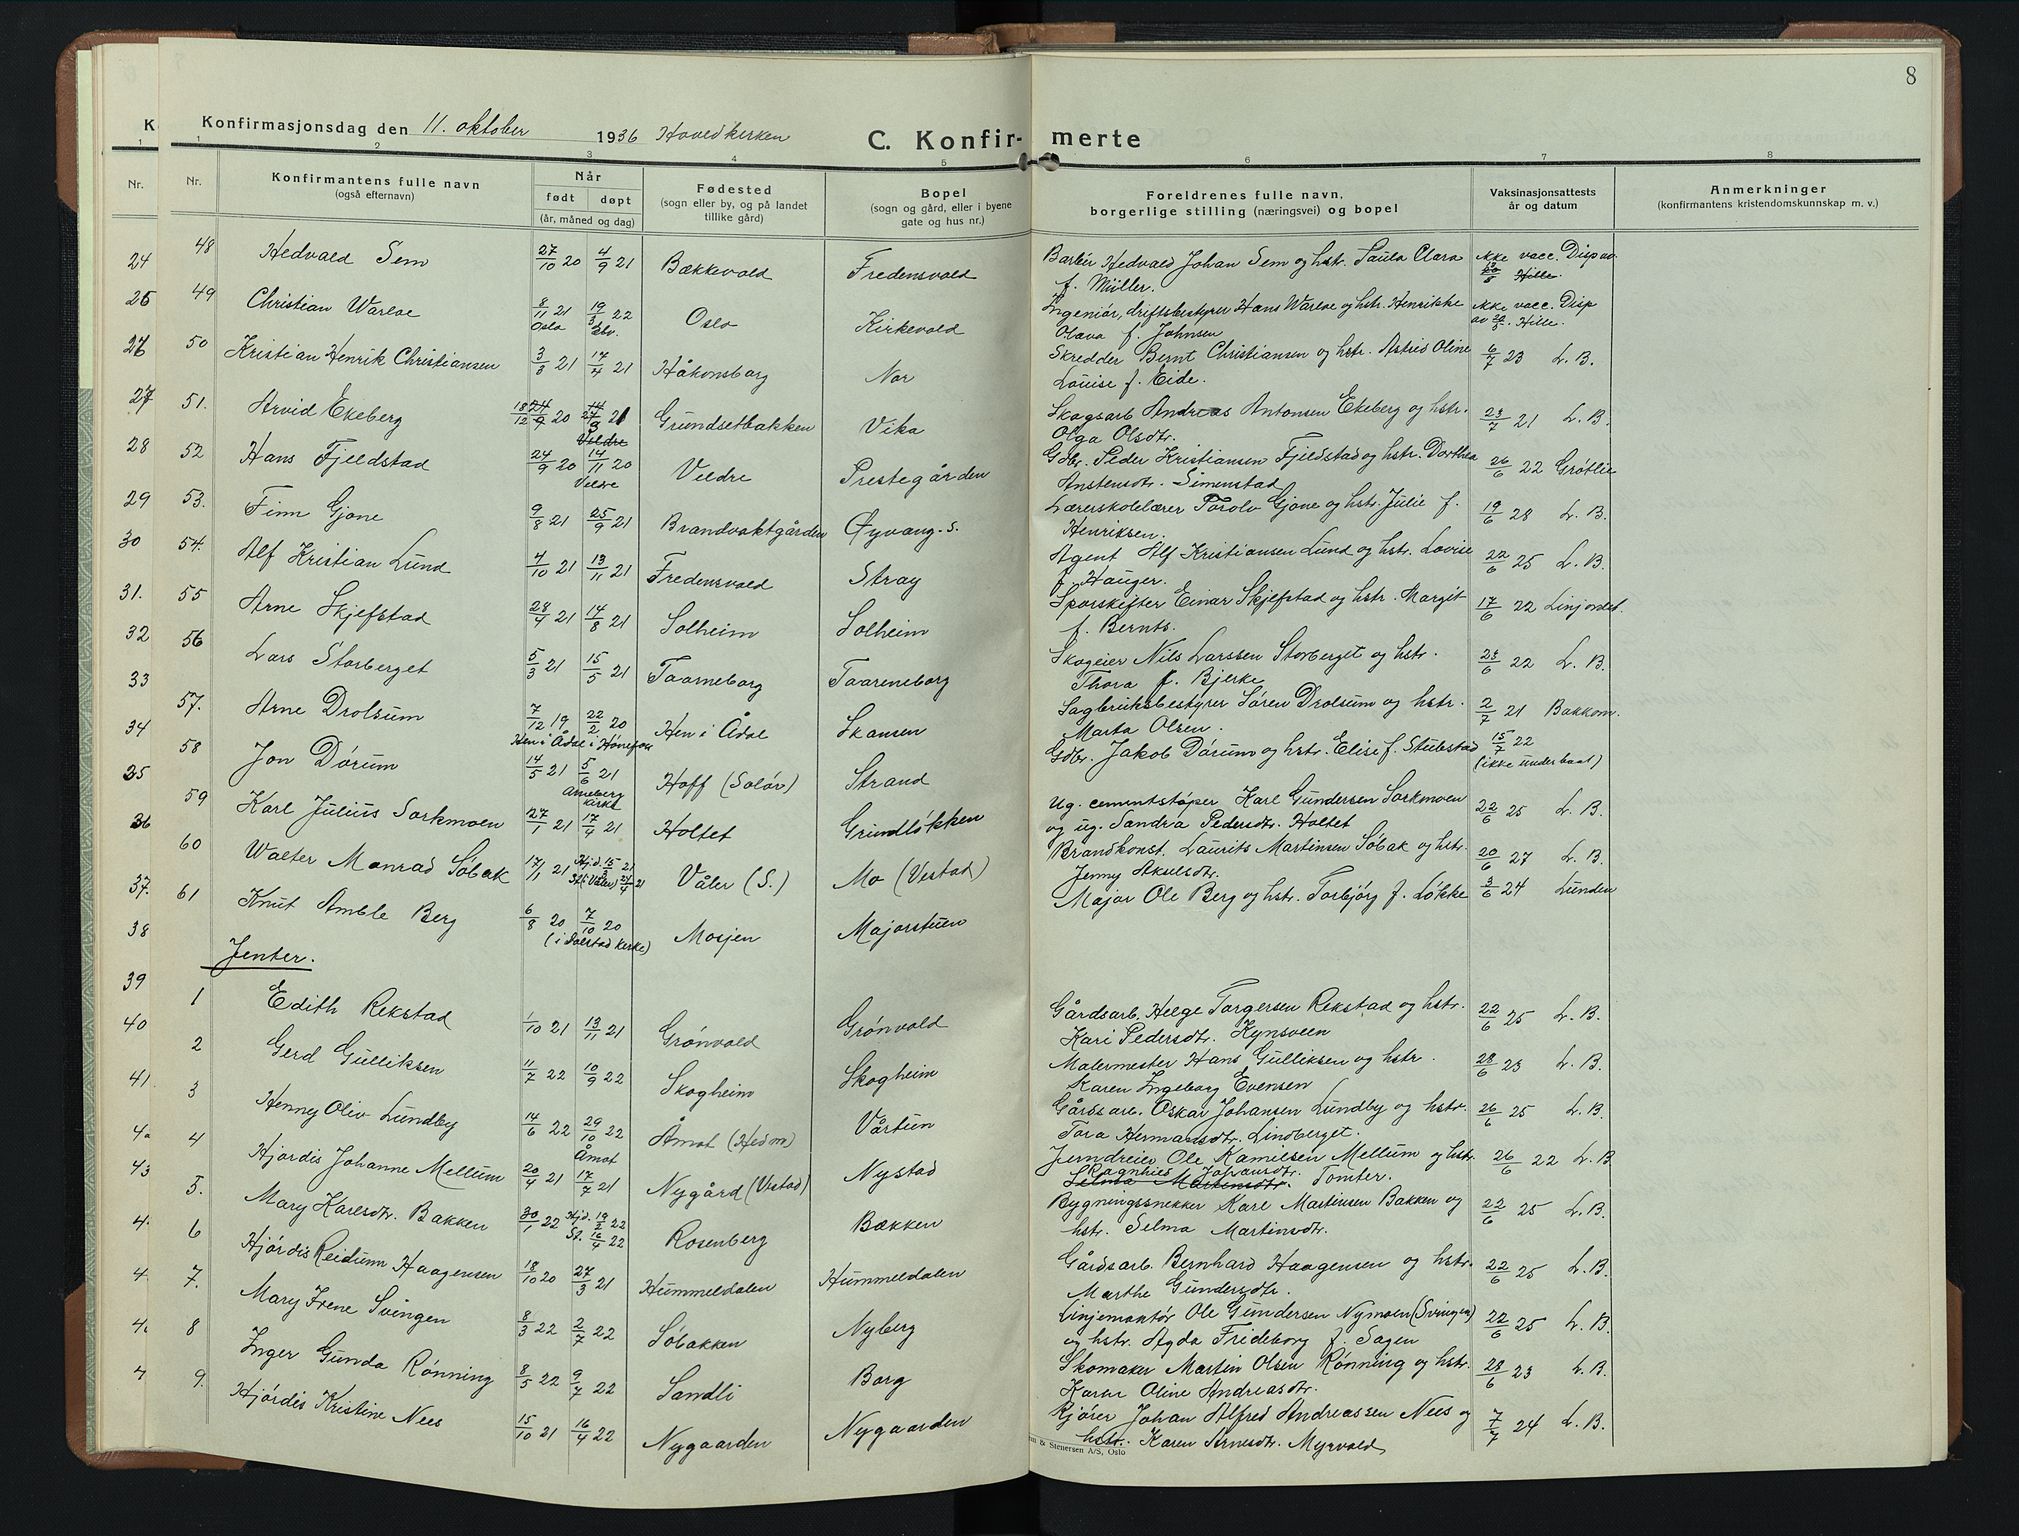 8
Konfirmasjonsdag den 11. oktober 1936 Hovedkirken
C. Konfir- merte
1 2 3 4 5 6 7 8
Nr.
Konfirmantens fulle navn
(også efternavn)
Når
født døpt
(år, måned og dag)
Fødested
(sogn eller by, og på landet
tillike gård)
Bopel
(sogn og gård, eller i byene
gate og hus nr.)
Foreldrenes fulle navn,
borgerlige stilling (næringsvei) og bopel
Vaksinasjonsattests
år og datum
Anmerkninger
(konfirmantens kristendomskunnskap m. v.)
48 Hedvald Sem 27/10 20 4/9 21 Bækkevold Fredensvold Barbér Hedvald Johan Sem og hstr. Paula Clara f. Müller. Ikke vacc. Disp av Hille.
49 Christian Warloe 8/11 21 Oslo 19/3 22 Oslo Kirkevold Ingeniør, driftsbestyrer Hans Warloe og hstr. Henrikke Olava f. Johnsen Ikke vacc. Disp av Hille.
50 Kristian Henrik Christiansen 3/3 21 17/4 21 Håkonsborg Nor Skredder Bernt Christiansen og hstr. Astrid Oline Louise f. Eide. 6/7 23 L. B.
51. Arvid Ekeberg 18/12 20 21 Grundsetbakken Vika Skogsarb. Andreas Antonsen Ekeberg og hstr. Olga Olsdtr. 23/7 21 L. B.
52 Hans Fjeldstad 24/9 20 14/11 20 Veldre Veldre Prestegården Gdbr. Peder Kristiansen Fjeldstad og hstr. Dorthea Anstensdtr. Simenstad 26/6 22 Grøtlie
53. Finn Gjone 9/8 21 25/9 21 Brandvaktgården Øyvang. s. Lærerskolelærer Torolv Gjone og hstr. Julie f. Henriksen. 19/6 28 L. B.
54. Alf Kristian Lund 4/10 21 13/11 21 Fredensvold Stray Agent Alf Kristiansen Lund og hstr. Lovise f. Hauger. 22/6 25 L. B.
55 Arne Skjefstad 28/4 21 14/8 21 Solheim Solheim Sporskifter Einar Skjefstad og hstr. Margit f. Bernts. 17/6 22 Linjordet.
56 Lars Storberget 5/3 21 15/5 21 Taarneborg Taarneborg Skogeier Nils Larssen Storberget og hstr. Thora f. Bjerke 23/6 22 L. B.
57. Arne Drolsum 7/12 19 22/2 20 Hen i Ådal i Hønefoss Hen i Ådal Skansen Sagbruksbestyrer Søren Drolsum og hstr. Marta Olsen. 2/7 21 Bakkom.
58 Jon Dørum 14/5 21 5/6 21 Arneberg kirke Hoff (Solør) Strand Gdbr. Jakob Dørum og hstr. Elise f. Stubstad 15/7 22 (ikke underbaat)
59 Karl Julius Sorkmoen 27/1 21 17/4 21 Holtet Grundløkken Ug. cementstøper Karl Gundersen Sorkmoen og ug. Sandra Pedersdtr. Holtet 22/6 25 L. B.
60 Walter Monrad Søbak 17/1 21 Hjd. 15/3 21 St. Våler) 24/4 21 Våler (S.) Mo (Vestad) Brandkonst. Laurits Martinsen Søbak og hstr. Jenny Akselsdtr. 20/6 27 L. B.
61 Knut Amble Berg 6/8 20 7/10 20 (i Dolstad kirke) Mosjøen Majorstuen Major Ole Berg og hstr. Torbjørg f. Løkke 3/6 24 Lunden
Jenter.
1 Edith Rekstad 1/10 21 13/11 21 Grønvold Grønvold Gårdsarb. Helge Torgersen Rekstad og hstr. Kari Pedersdtr. Kynsveen 22/6 25 L. B.
2 Gerd Gulliksen 11/7 22 10/9 22 Skogheim Skogheim Malermester Hans Gulliksen og hstr. Karen Ingeborg Evensen 28/6 23 L. B.
3 Henny Oliv Lundby 14/6 22 29/10 22 Åmot Åmot (Hedm) Vårtun Gårdsarb. Oskar Johansen Lundby og hstr. Tora Hermansdtr. Lindberget. 26/6 25 L. B.
4 Hjørdis Johanne Mellum 20/4 21 17/7 21 Nygård (Vestad) Nystad Jerndreier Ole Kamilsen Mellum og hstr. Ragnhild Johansdtr. Selma Martinsdtr. Tomter. 26/6 22 L. B
5. Mary Karlsdtr. Bakken 30/1 22 Hjd. 19/2 22 St. 16/4 22 Rosenberg Bækken Bygningssnekker Karl Martinsen Bakken og hstr. Selma Martinsdtr. 22/6 25 L. B.
6 Hjørdis Reidunn Haagensen 18/10 20 27/3 21 Hummeldalen Hummeldalen Gårdsarb. Bernhard Haagensen og hstr. Marthe Gundersdtr. 22/6 25 L. B.
7. Mary Irene Svingen 8/3 22 2/7 22 Søbakken Nyberg Linjemontør Ole Gundersen Nymoen (Svingen) og hstr. Agda Frideborg f. Sagen 22/6 25 L. B.
8 Inger Gunda Rønning 8/5 22 9/7 22 Sandli Borg Skomaker Martin Olsen Rønning og hstr. Karen Oline Andreasdtr. 28/6 23 L. B.
9. Hjørdis Kristine Nees 15/10 21 16/4 22 Nygaarden Nygaarden Kjører Johan Alfred Andreassen Nees og hstr. Karen Arnesdtr. Myrvold 7/7 24 L. B.
& Stenersen A/S, Oslo